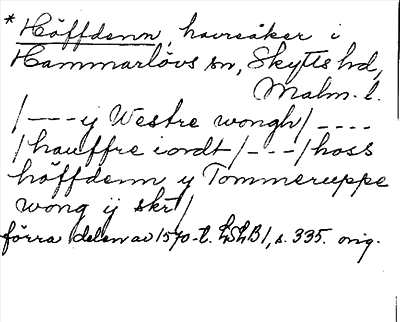 * Höffdenn, havreåker i
Hammarlövs sn, Skytts hd,
Malm. l.
/--- ij Westre wongh/ ----
/hauffre iordt/---/hoss
höffdenn y Tommeruppe
wong ij skr/
förra delen av 1570-t. LSLB1, s. 335. orig.